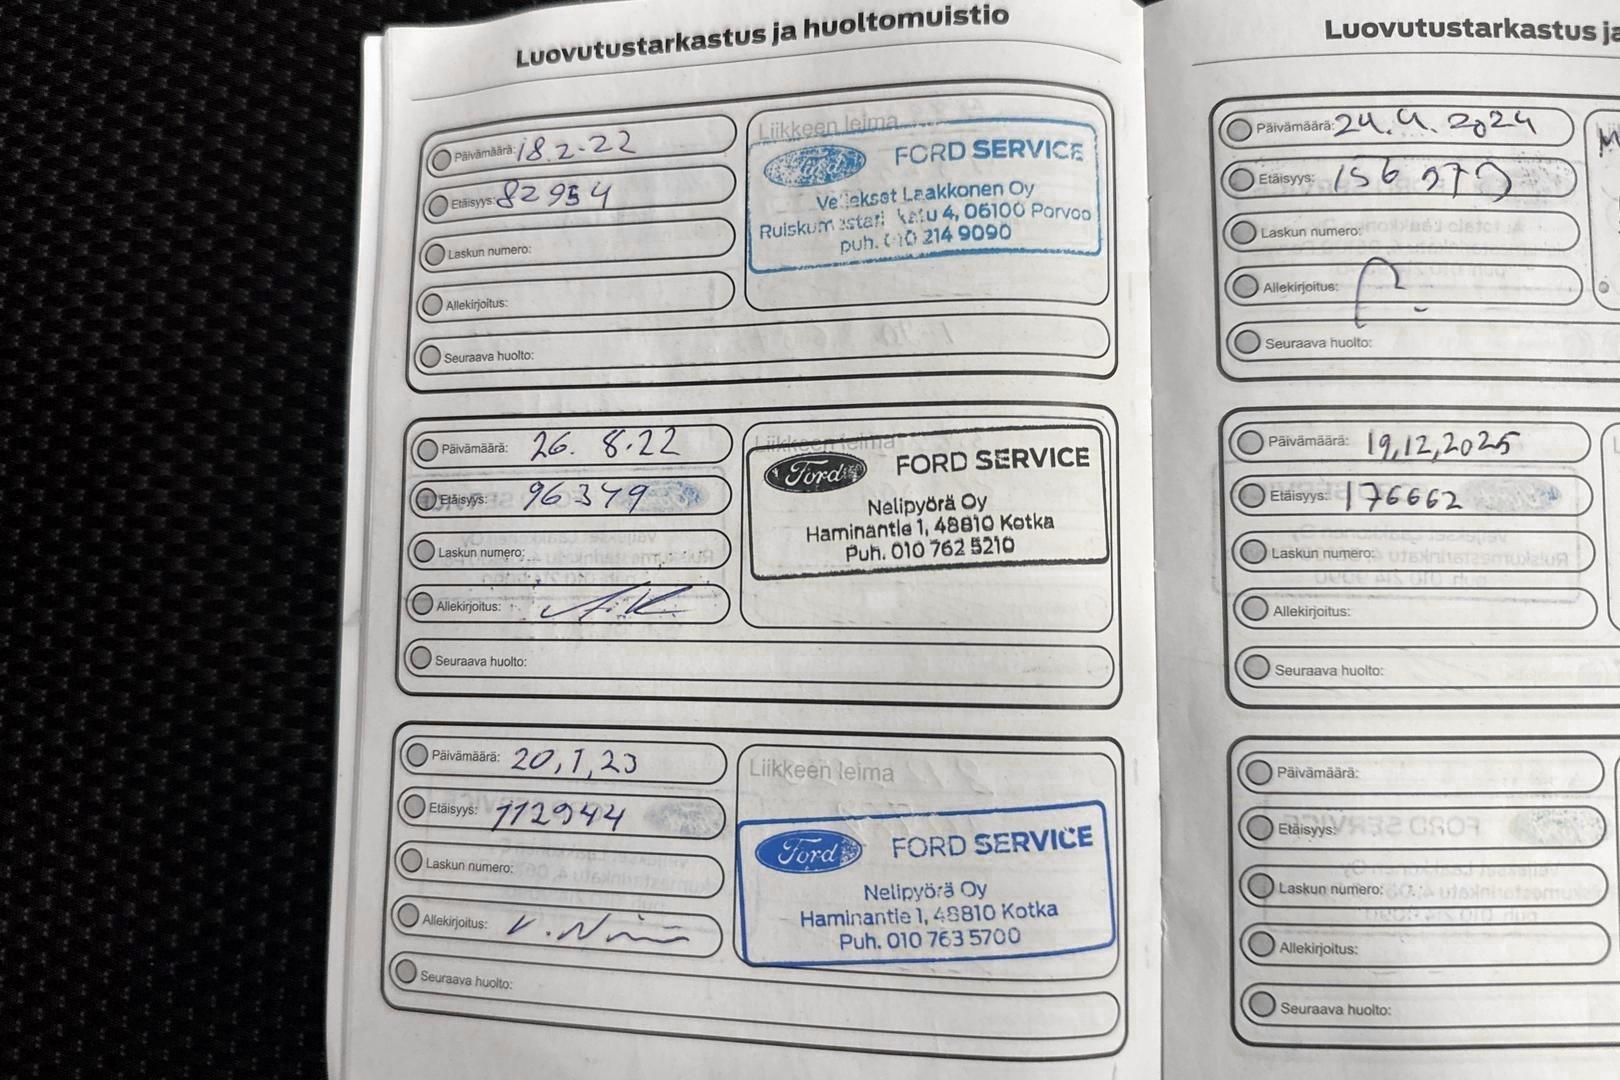 Luovutustarkastus ja huoltomuistio
Päivämäärä: 18.2.22
Etäisyys: 82954
Laskun numero:
Allekirjoitus:
Seuraava huolto:
Liikkeen leima
Ford FORD SERVICE
Veljekset Laakkonen Oy
Ruiskumestarinkatu 4, 06100 Porvoo
puh. 010 214 9090
Päivämäärä: 26. 8.22
Etäisyys: 96349
Laskun numero:
Allekirjoitus:
Seuraava huolto:
Liikkeen leima
Ford FORD SERVICE
Nelipyörä Oy
Haminantie 1, 48810 Kotka
Puh. 010 762 5210
Päivämäärä: 20,1,23
Etäisyys: 112944
Laskun numero:
Allekirjoitus:
Seuraava huolto:
Liikkeen leima
Ford FORD SERVICE
Nelipyörä Oy
Haminantie 1, 48810 Kotka
Puh. 010 763 5700
Luovutustarkastus ja
Päivämäärä: 24.4.2024
Etäisyys: 156979
Laskun numero:
Allekirjoitus:
Seuraava huolto:
Päivämäärä: 19,12,2025
Etäisyys: 176662
Laskun numero:
Allekirjoitus:
Seuraava huolto:
Päivämäärä:
Etäisyys:
Laskun numero:
Allekirjoitus:
Seuraava huolto: